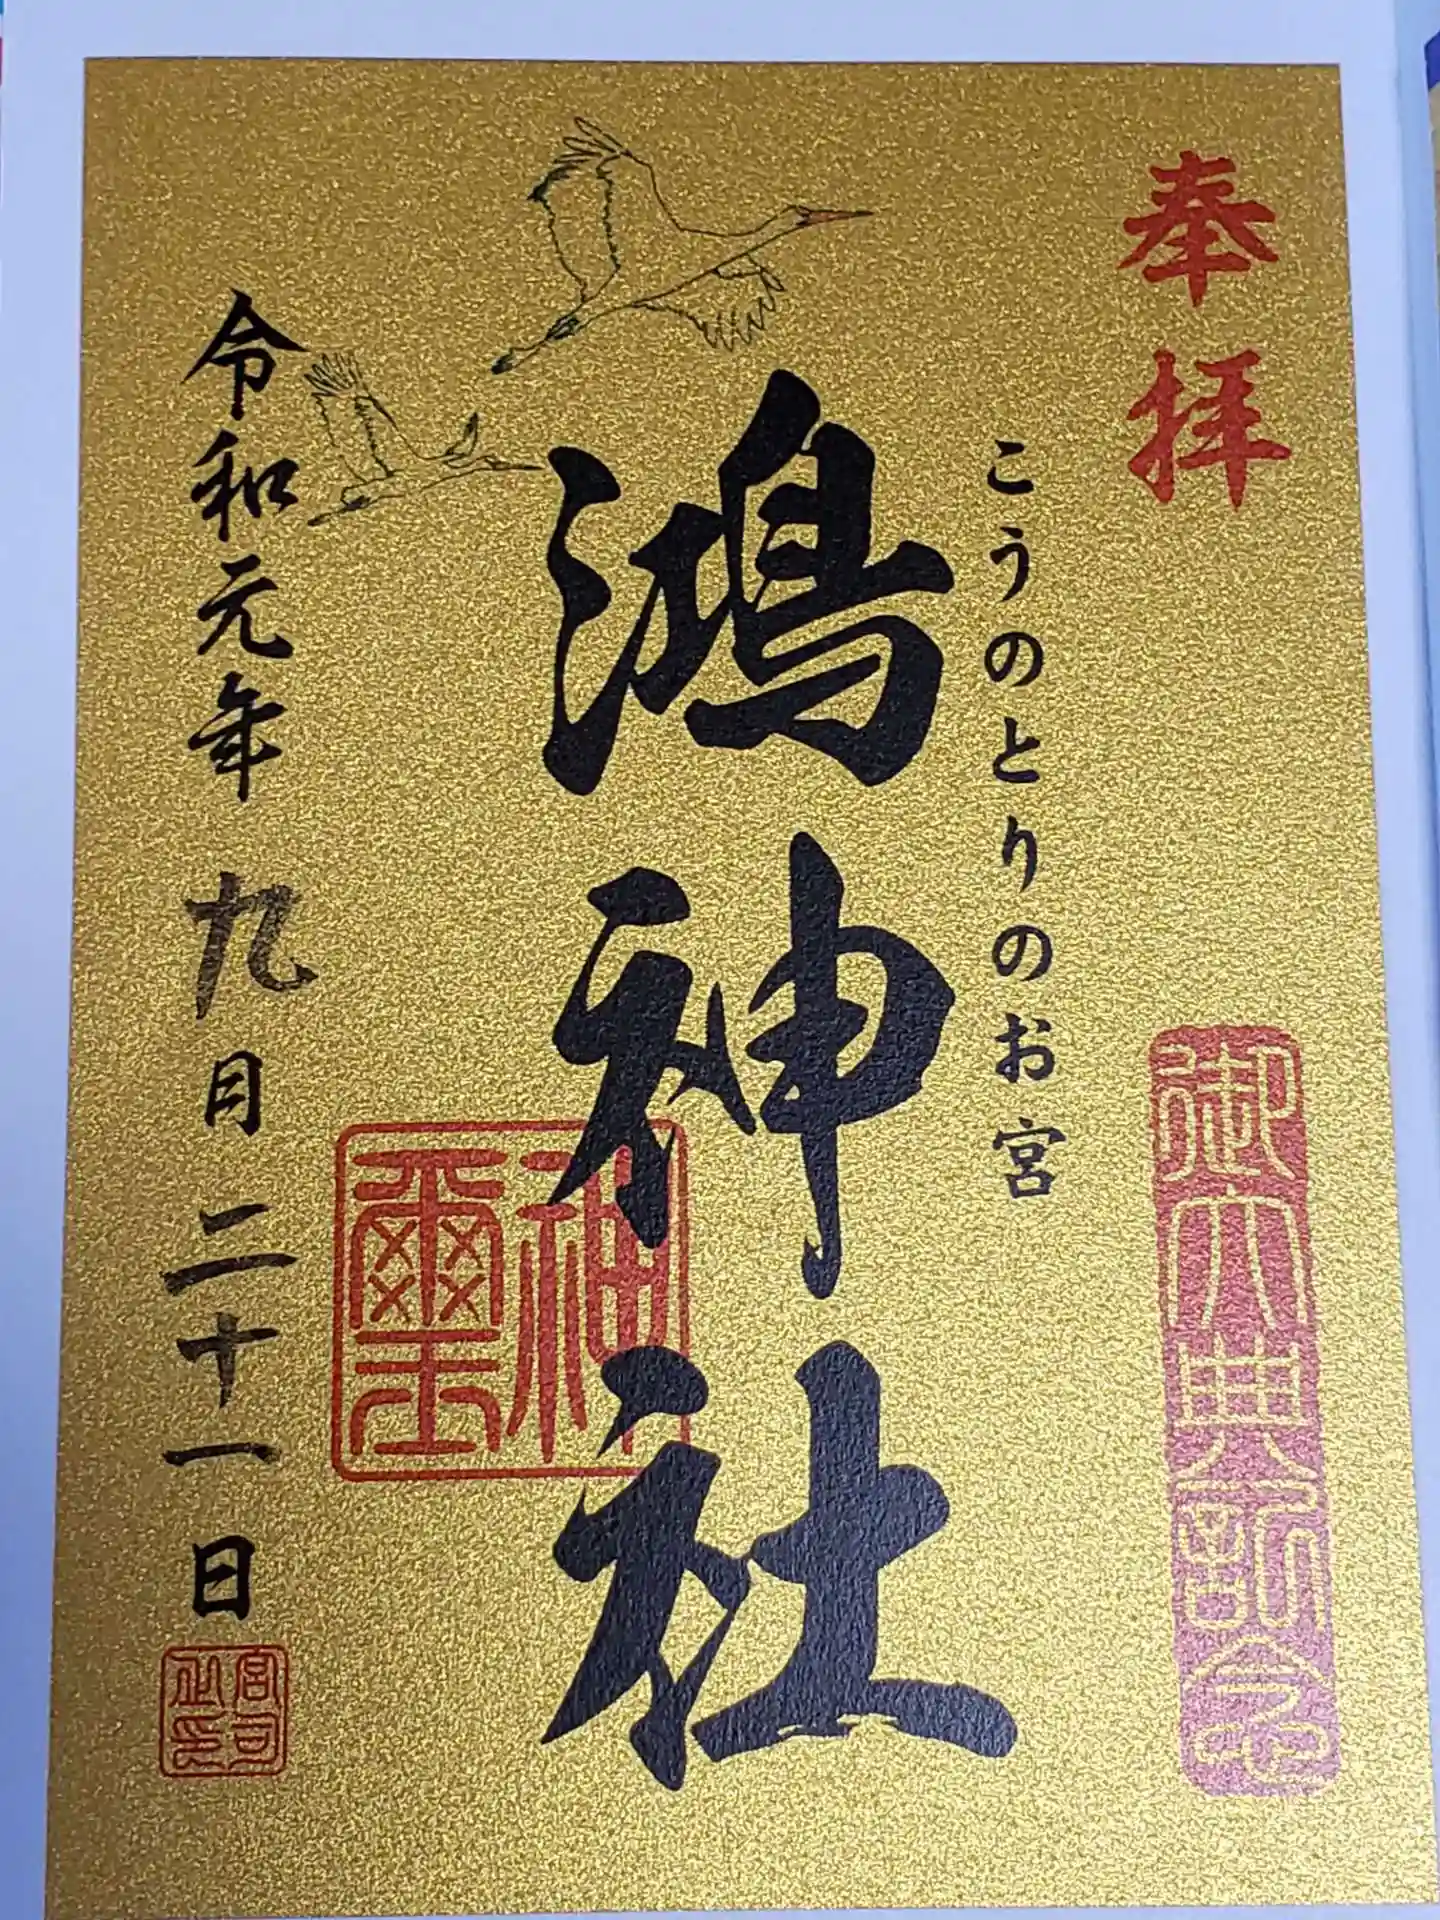 奉拝
御大典記念
こうのとりのお宮
鴻神社
神璽
令和元年 九月 二十一日
宮司之印